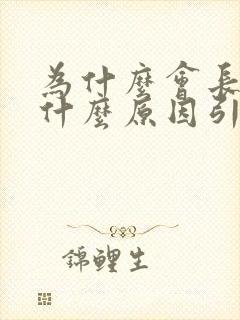 為什麼會長
什麼原因引
錦鯉生